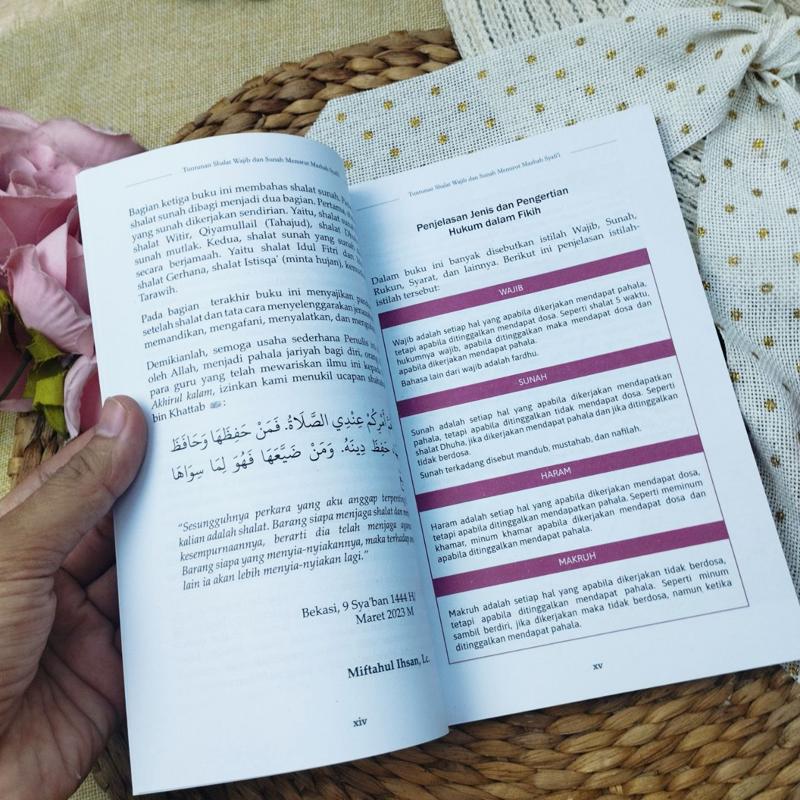 Tuntunan Shalat Wajib dan Sunah Menurut Mazhab Syafi'i
Bagian ketiga buku ini membahas shalat sunah.
shalat sunah dibagi menjadi dua bagian. Pertama,
yang sunah dikerjakan sendirian. Yaitu, shalat
shalat Witir, Qiyamullail (Tahajud), shalat
sunah mutlak. Kedua, shalat sunah yang
secara berjamaah. Yaitu shalat Idul Fitri dan
shalat Gerhana, shalat Istisqa' (minta hujan),
Tarawih.
Pada bagian terakhir buku ini menyajikan
setelah shalat dan tata cara menyelenggarakan
memandikan, mengafani, menyalatkan, dan
Demikianlah, semoga usaha sederhana Penulis
oleh Allah, menjadi pahala jariyah bagi diri,
para guru yang telah mewariskan ilmu ini
Akhirul kalam, izinkan kami menukil ucapan
bin Khattab :
أَمْرِكُمْ عِنْدِي الصَّلَاةُ. فَمَنْ حَفِظَهَا وَحَافَظَ
حَفِظَ دِينَهُ. وَمَنْ ضَيَّعَهَا فَهُوَ لِمَا سِوَاهَا
"Sesungguhnya perkara yang aku anggap
kalian adalah shalat. Barang siapa menjaga shalat dan
kesempurnaannya, berarti dia telah menjaga
Barang siapa yang menyia-nyiakannya, maka terhadap
lain ia akan lebih menyia-nyiakan lagi."
Bekasi, 9 Sya'ban 1444 H
Maret 2023 M
Miftahul Ihsan, Lc.
xiv
Tuntunan Shalat Wajib dan Sunah Menurut Mazhab Syafi'i
Penjelasan Jenis dan Pengertian
Hukum dalam Fikih
Dalam buku ini banyak disebutkan istilah Wajib, Sunah,
Rukun, Syarat, dan lainnya. Berikut ini penjelasan istilah-
istilah tersebut:
WAJIB
Wajib adalah setiap hal yang apabila dikerjakan mendapat pahala,
tetapi apabila ditinggalkan mendapat dosa. Seperti shalat 5 waktu,
hukumnya wajib, apabila ditinggalkan maka mendapat dosa dan
apabila dikerjakan mendapat pahala.
Bahasa lain dari wajib adalah fardhu.
SUNAH
Sunah adalah setiap hal yang apabila dikerjakan mendapatkan
pahala, tetapi apabila ditinggalkan tidak mendapat dosa. Seperti
shalat Dhuha, jika dikerjakan mendapat pahala dan jika ditinggalkan
tidak berdosa.
Sunah terkadang disebut mandub, mustahab, dan nafilah.
HARAM
Haram adalah setiap hal yang apabila dikerjakan mendapat dosa,
tetapi apabila ditinggalkan mendapatkan pahala. Seperti meminum
khamar, minum khamar apabila dikerjakan mendapat dosa dan
apabila ditinggalkan mendapat pahala.
MAKRUH
Makruh adalah setiap hal yang apabila dikerjakan tidak berdosa,
tetapi apabila ditinggalkan mendapat pahala. Seperti minum
sambil berdiri, jika dikerjakan maka tidak berdosa, namun ketika
ditinggalkan mendapat pahala.
xv